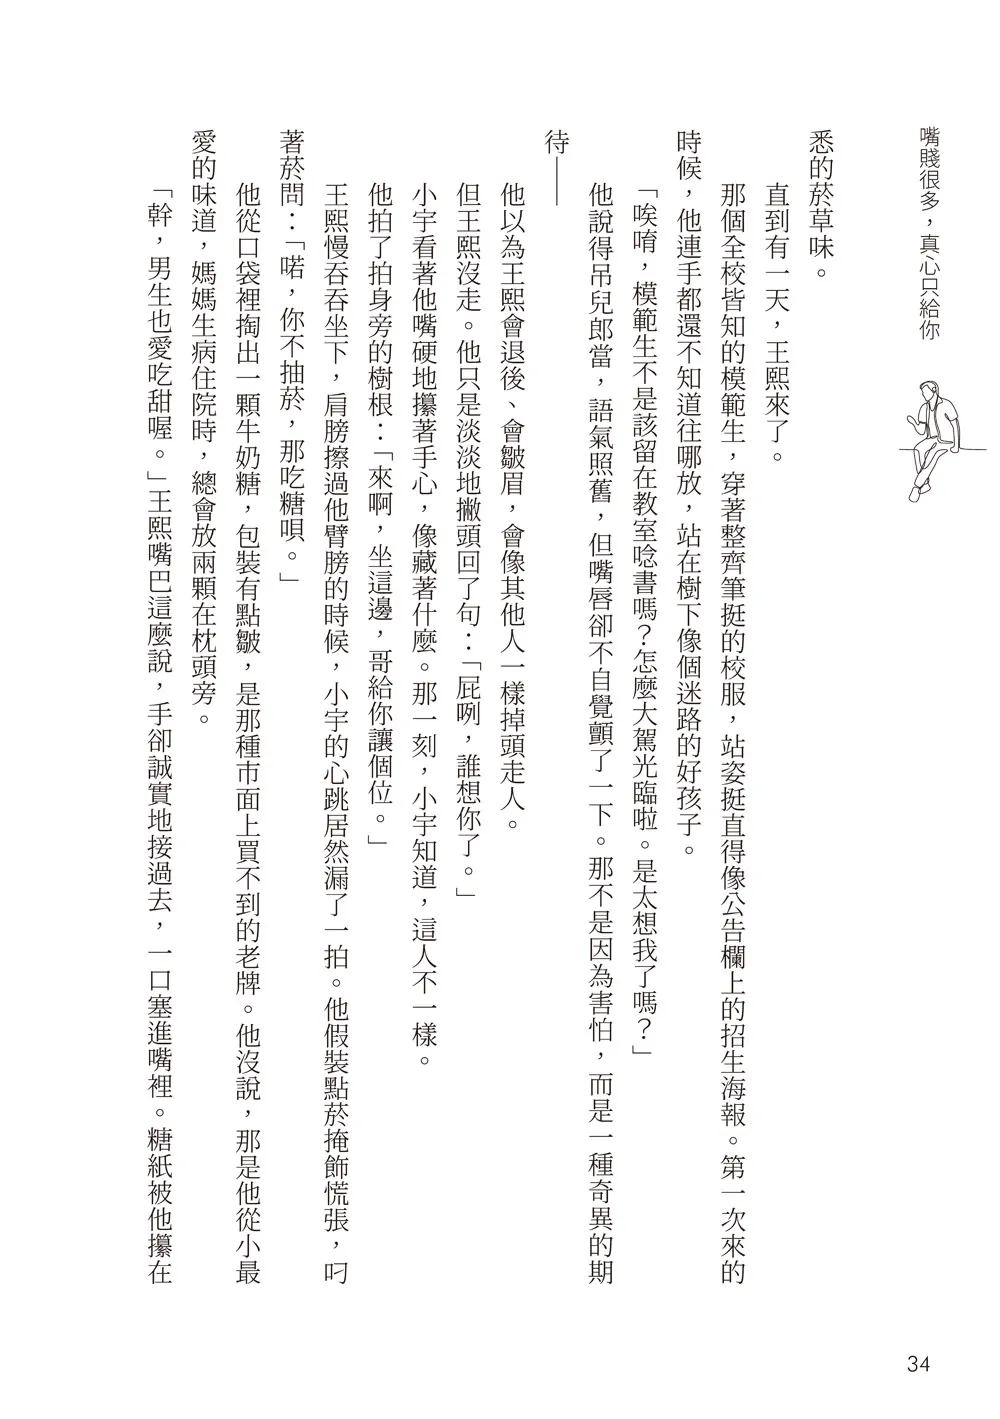 嘴賤很多，真心只給你
悉的菸草味。
直到有一天，王熙來了。
那個全校皆知的模範生，穿著整齊筆挺的校服，站姿挺直得像公告欄上的招生海報。第一次來的
時候，他連手都還不知道往哪放，站在樹下像個迷路的好孩子。
「唉唷，模範生不是該留在教室唸書嗎？怎麼大駕光臨啦。是太想我了嗎？」
他說得吊兒郎當，語氣照舊，但嘴唇卻不自覺顫了一下。那不是因為害怕，而是一種奇異的期
待——
他以為王熙會退後、會皺眉，會像其他人一樣掉頭走人。
但王熙沒走。他只是淡淡地撇頭回了句：「屁咧，誰想你了。」
小宇看著他嘴硬地攥著手心，像藏著什麼。那一刻，小宇知道，這人不一樣。
他拍了拍身旁的樹根：「來啊，坐這邊，哥給你讓個位。」
王熙慢吞吞坐下，肩膀擦過他臂膀的時候，小宇的心跳居然漏了一拍。他假裝點菸掩飾慌張，叼
著菸問：「喏，你不抽菸，那吃糖唄。」
他從口袋裡掏出一顆牛奶糖，包裝有點皺，是那種市面上買不到的老牌。他沒說，那是他從小最
愛的味道，媽媽生病住院時，總會放兩顆在枕頭旁。
「幹，男生也愛吃甜喔。」王熙嘴巴這麼說，手卻誠實地接過去，一口塞進嘴裡。糖紙被他攥在
34